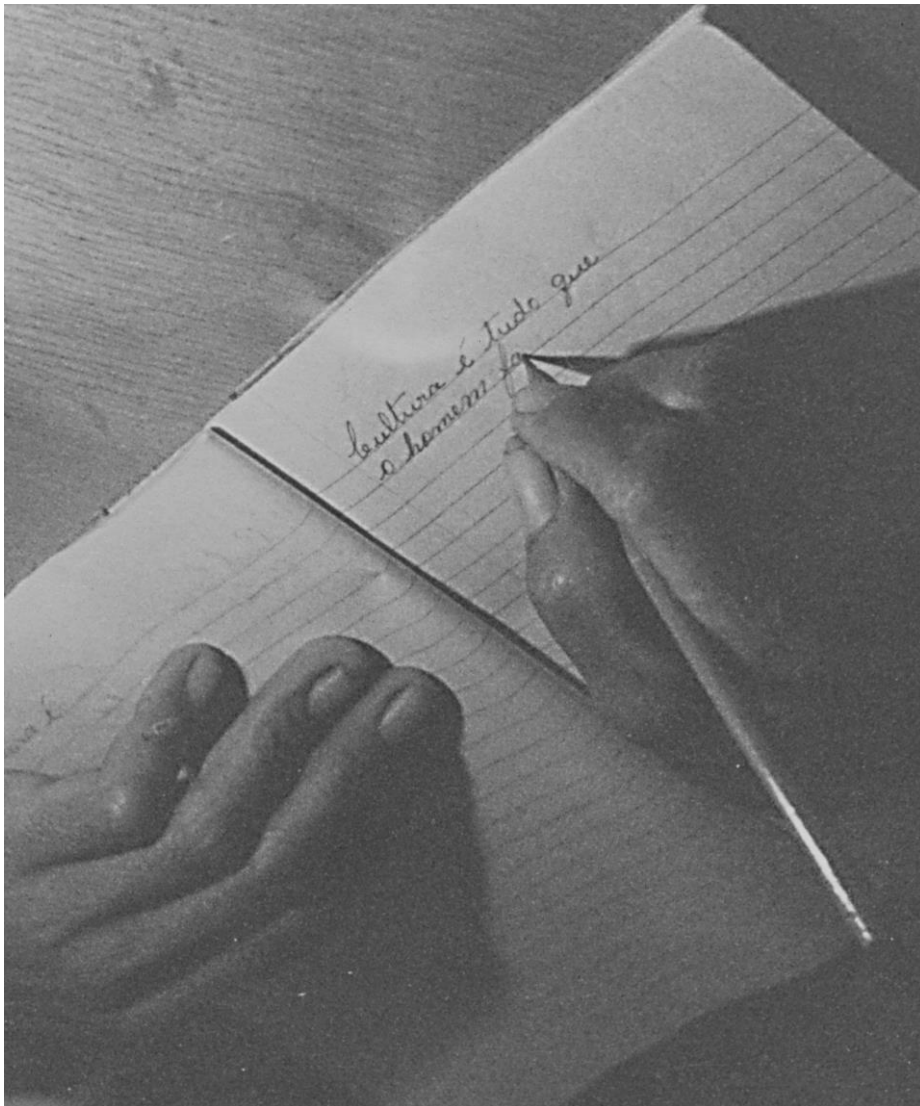 Cultura é tudo que
o homem fa